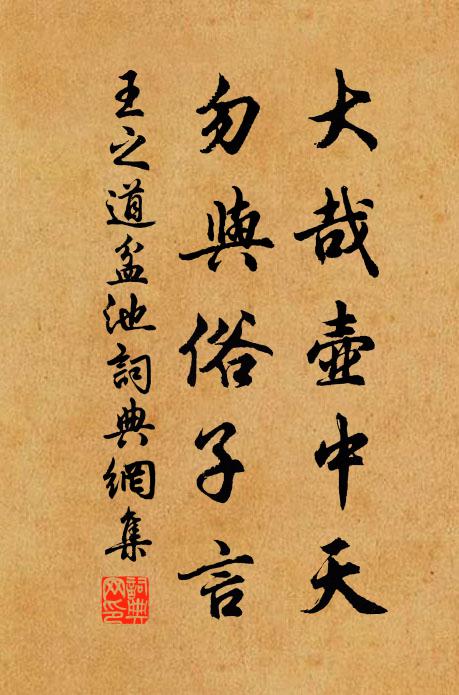 大哉壺中天
勿與俗子言
王之道盆池詞典網集
詞典网印